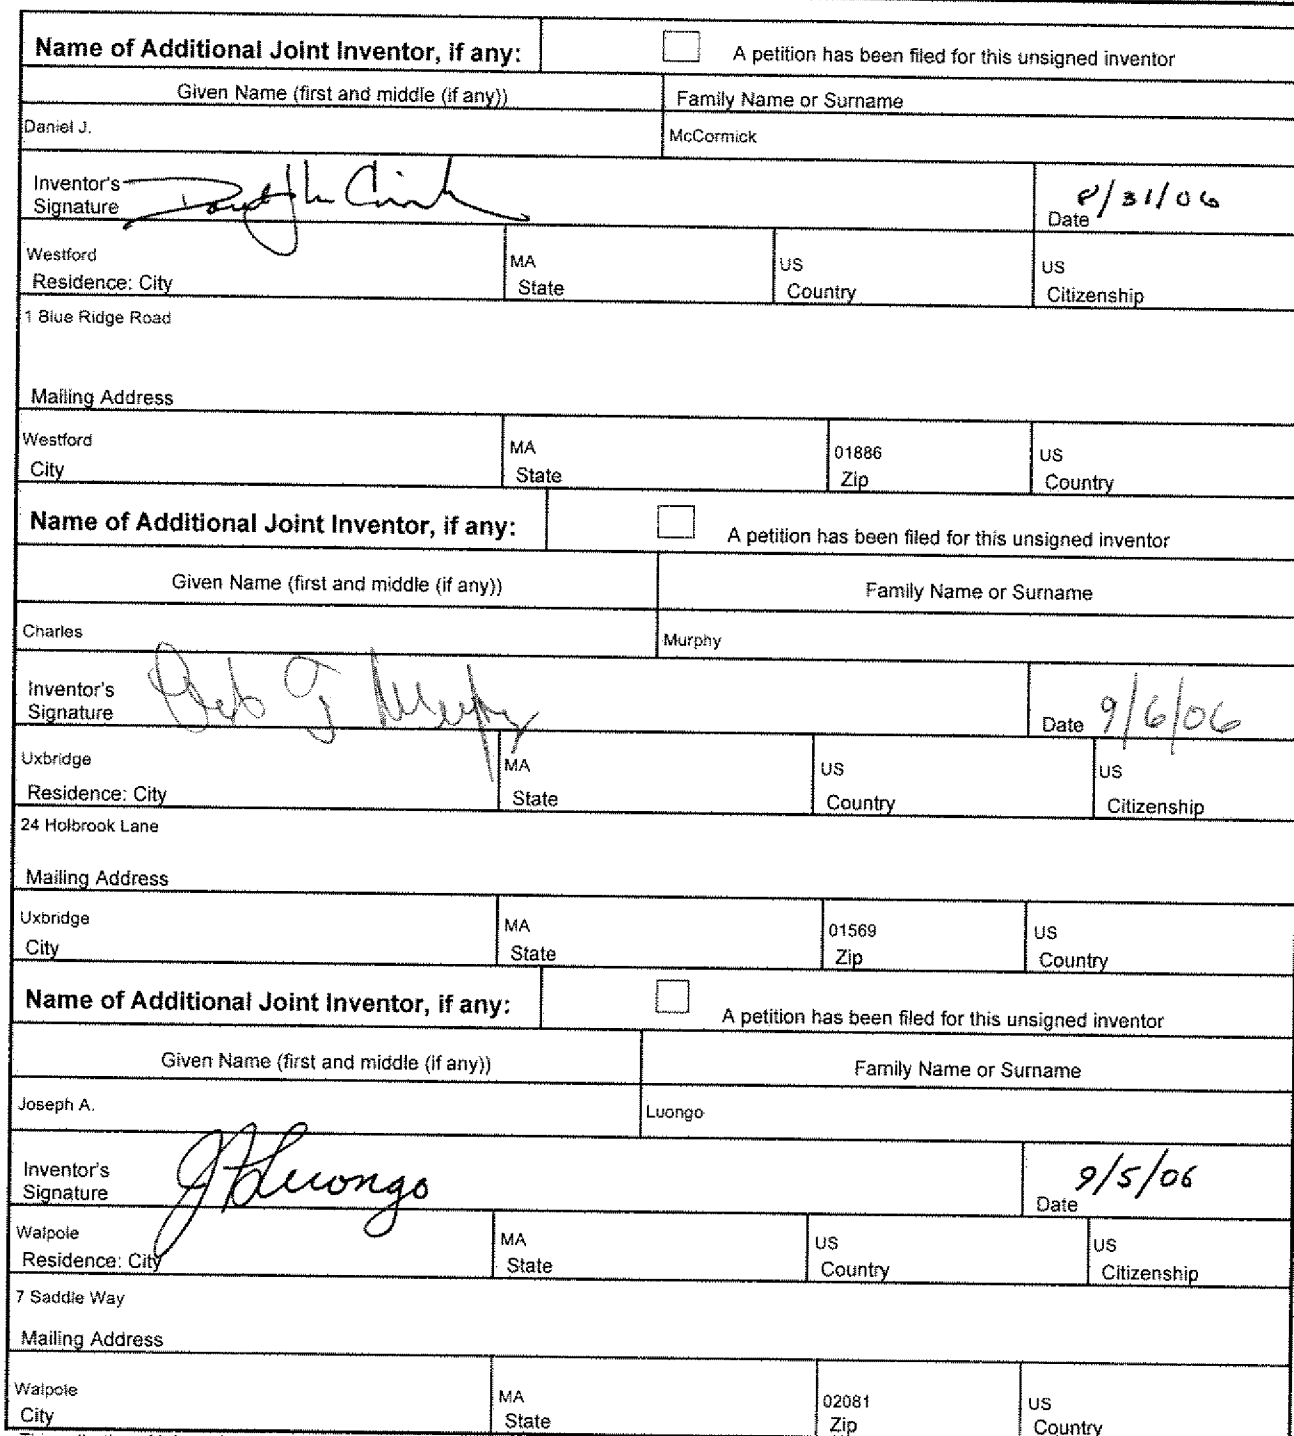 Name of Additional Joint Inventor, if any: A petition has been filed for this unsigned inventor
Given Name (first and middle (if any)) Family Name or Surname
Daniel J. McCormick
Inventor's
Signature
8/31/06
Date
Westford MA US US
Residence: City State Country Citizenship
1 Blue Ridge Road
Mailing Address
Westford MA 01886 US
City State Zip Country
Name of Additional Joint Inventor, if any: A petition has been filed for this unsigned inventor
Given Name (first and middle (if any)) Family Name or Surname
Charles Murphy
Inventor's
Signature Murphy
Date 9/6/06
Uxbridge MA US US
Residence: City State Country Citizenship
24 Holbrook Lane
Mailing Address
Uxbridge MA 01569 US
City State Zip Country
Name of Additional Joint Inventor, if any: A petition has been filed for this unsigned inventor
Given Name (first and middle (if any)) Family Name or Surname
Joseph A. Luongo
Inventor's
Signature JALuongo
9/5/06
Date
Walpole MA US US
Residence: City State Country Citizenship
7 Saddle Way
Mailing Address
Walpole MA 02081 US
City State Zip Country